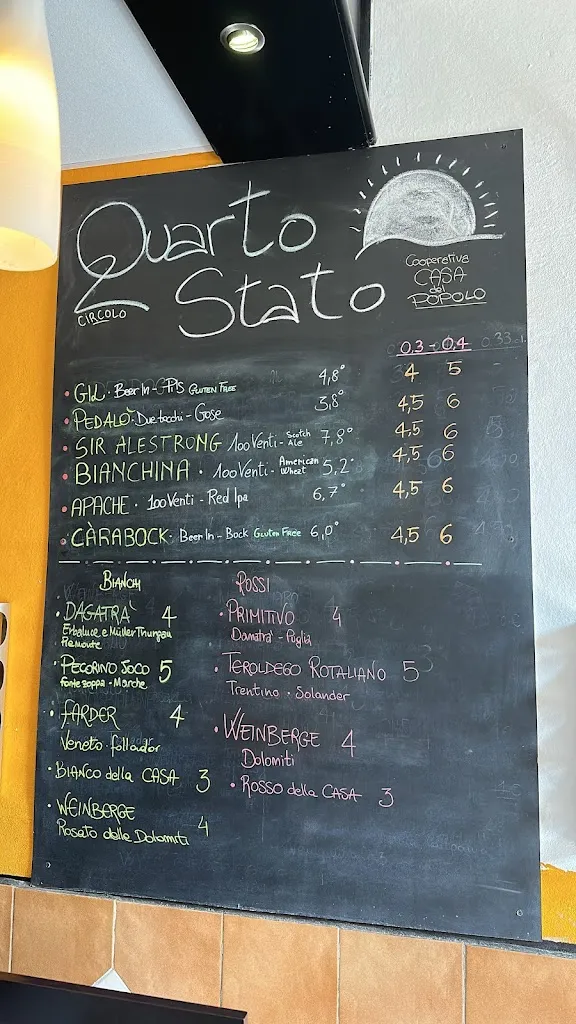 Quarto
Stato
CIRCOLO
Cooperativa
CASA
del
POPOLO
0,3 - 0,4
GIL · Beer In - Pils GLUTEN FREE 4,8° 4 5
PEDALÒ · Duetocchi - Gose 3,8° 4,5 6
SIR ALESTRONG 100Venti - Scotch Ale 7,8° 4,5 6
BIANCHINA · 100Venti - American Wheat 5,2° 4,5 6
APACHE · 100Venti - Red Ipa 6,7° 4,5 6
CÀRABOCK · Beer In - Bock Gluten Free 6,0° 4,5 6
BIANCHI
· DAGATRÀ 4
Erbaluce e Müller Thurgau
Piemonte
· PECORINO JOCO 5
Fonte Zoppa - Marche
· FARDER 4
Veneto · follador
· BIANCO della CASA 3
· WEINBERGE
Rosato delle Dolomiti 4
ROSSI
· PRIMITIVO 4
Damatrà - Puglia
· TEROLDEGO ROTALIANO 5
Trentino · Solander
· WEINBERGE 4
Dolomiti
· ROSSO della CASA 3